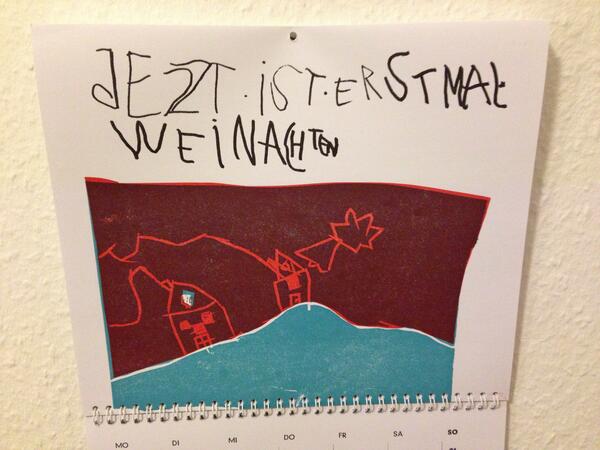 JEZT·iST·ERSTMAL
WEiNACHTEN
MO DI MI DO FR SA SO